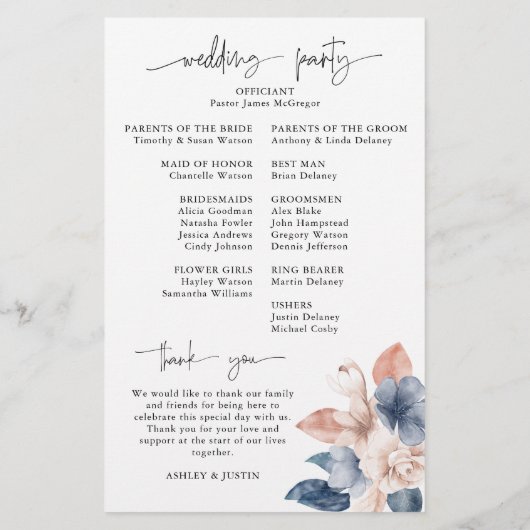 wedding party
OFFICIANT
Pastor James McGregor
PARENTS OF THE BRIDE
Timothy & Susan Watson
PARENTS OF THE GROOM
Anthony & Linda Delaney
MAID OF HONOR
Chantelle Watson
BEST MAN
Brian Delaney
BRIDESMAIDS
Alicia Goodman
Natasha Fowler
Jessica Andrews
Cindy Johnson
GROOMSMEN
Alex Blake
John Hampstead
Gregory Watson
Dennis Jefferson
FLOWER GIRLS
Hayley Watson
Samantha Williams
RING BEARER
Martin Delaney
USHERS
Justin Delaney
Michael Cosby
thank you
We would like to thank our family
and friends for being here to
celebrate this special day with us.
Thank you for your love and
support at the start of our lives
together.
ASHLEY & JUSTIN